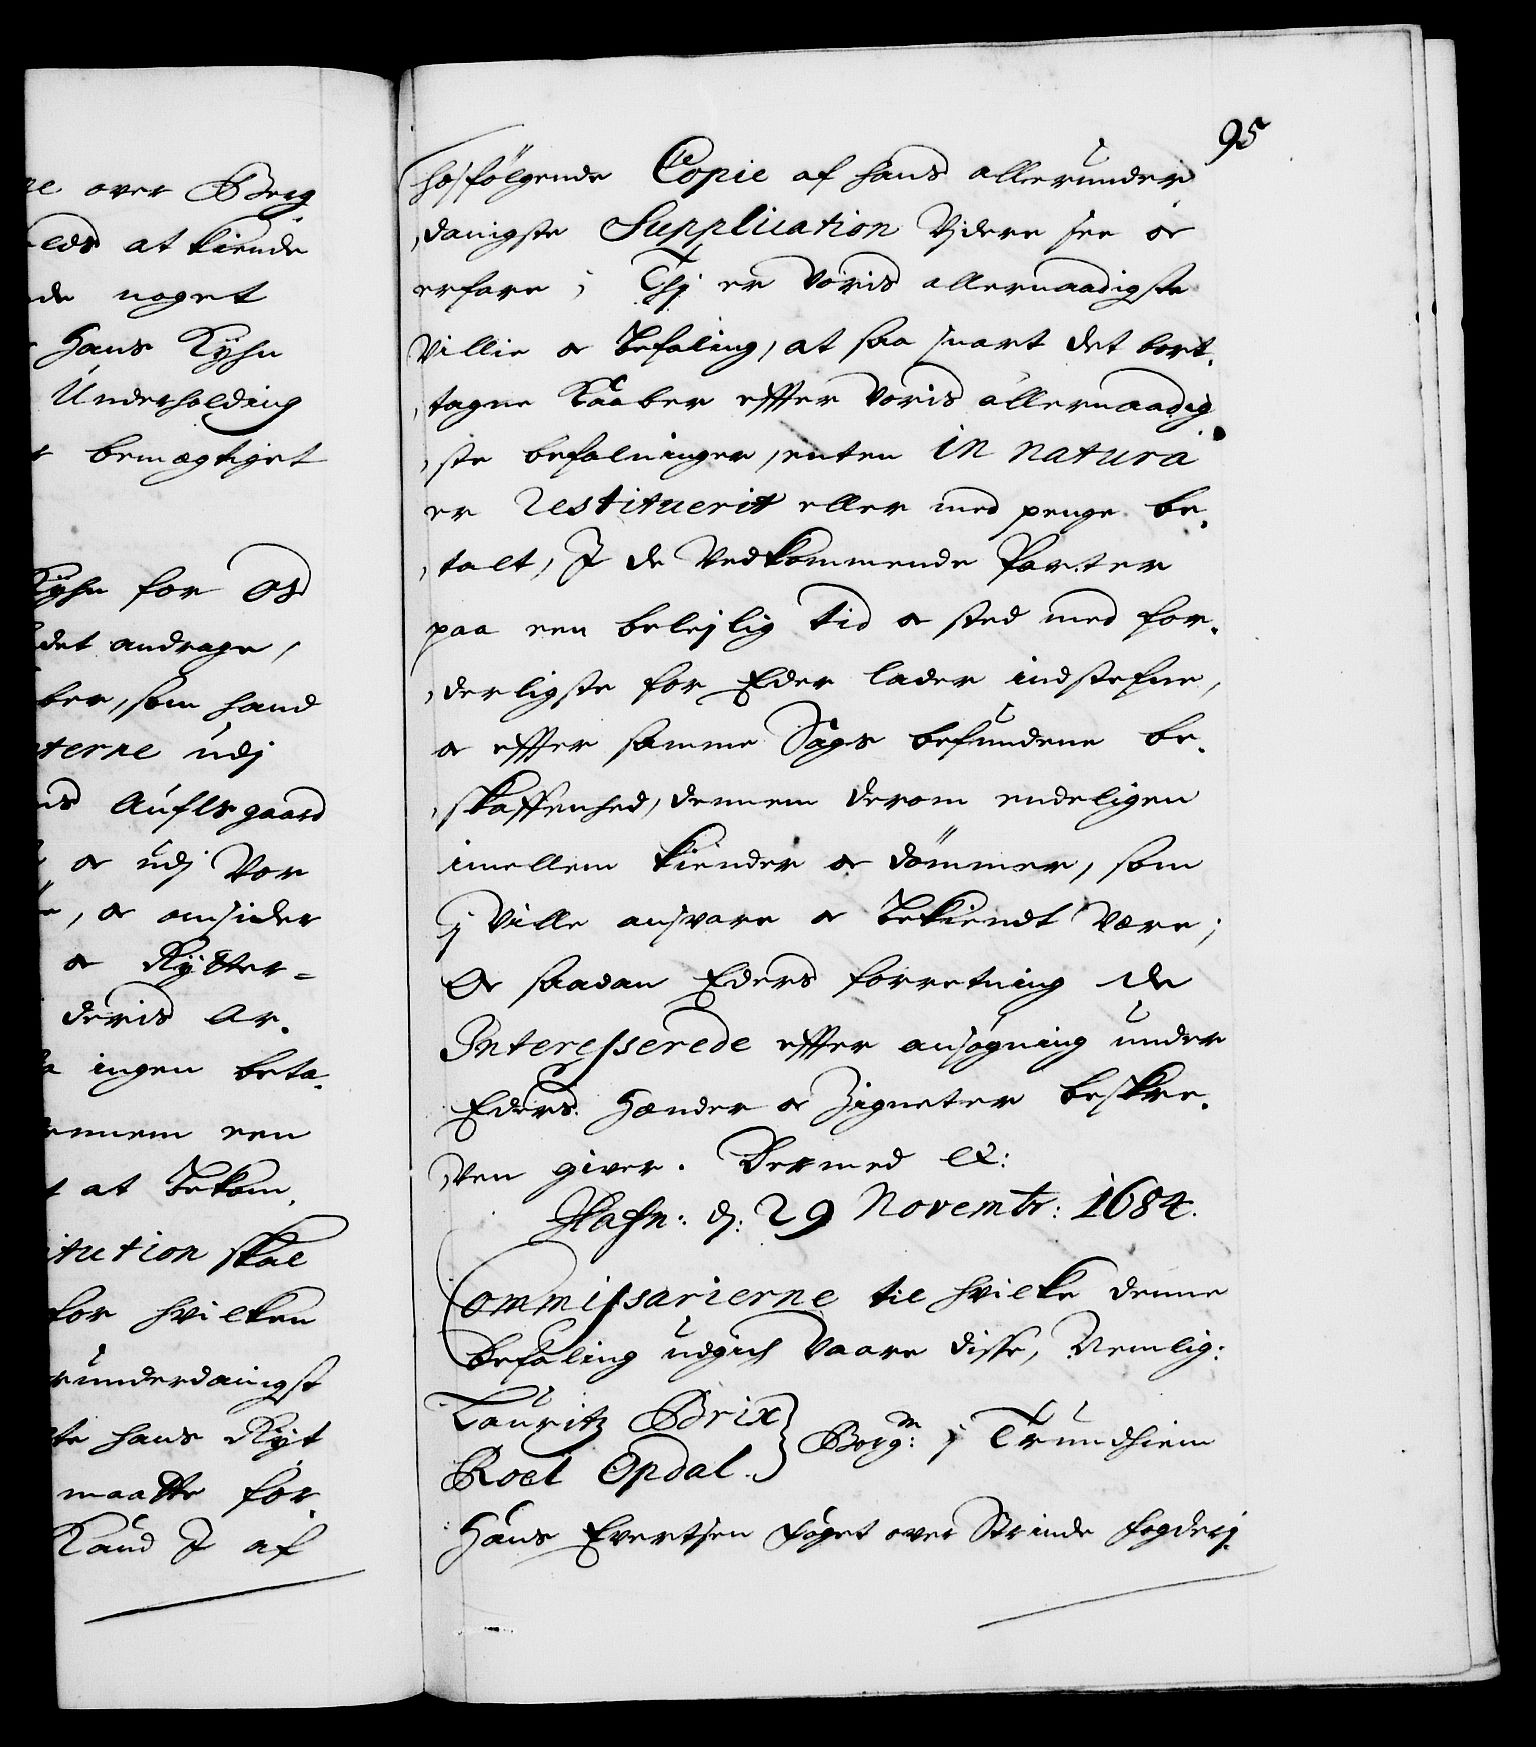 re over Berg
elds at kiende
de noget
Hans Kyhn
Underholding
bemegtiget
Kyhn for os
det andrage,
ber, som hand
terne udj
Auflsgaard
& udj Vor
, & omsider
& Rytter-
deris Ar,
ingen beta,
ennem een
at bekom,
itution skal
for hvilken
runderdanigst
hans Ryt
maatte for,
Kand I af
95
hosfølgende Copie af hans allerunder
,danigste Supplication Vjdere see &
erfare; Thj er Voris allernaadigste
Villie & befaling, at saa snart det bort,
,tagne Kaaber effter Voris allernaadig
,ste befalninger, enten in natura
er restituerit eller med penge be,
,talt, I de Vedkommende Parter
paa een belejlig tid & sted med for,
,derligste for Eder lader indstefne,
& effter samme Sags befundene be,
,skaffenhed, dennem derom endeligen
imellem kiender & dømmer, som
j Ville ansvare & bekiendt Være;
& saadan Eders forretning de
Interesserede effter ansøgning under
Eders Hænder & Zigneter beskre,
,Ven giver. Dermed &:
Hafn: d: 29 Novembr: 1684.
Commissarierne til hvilke denne
befaling udgich Vaare disse, Nemlig:
Lauritz Brix
Roel Opdal. } Borgm: j Trundhiem
Hans Evertsen foget over Strinde fogderj.